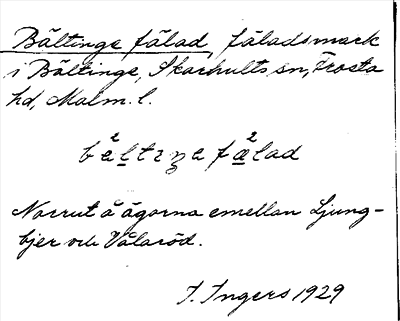 Bältinge fälad, fäladsmark
i Bältinge, Skarhults sn, Frosta
hd, Malm. l.
Norrut å ägorna emellan Ljung-
bjer och Våläröd.
I. Ingers 1929